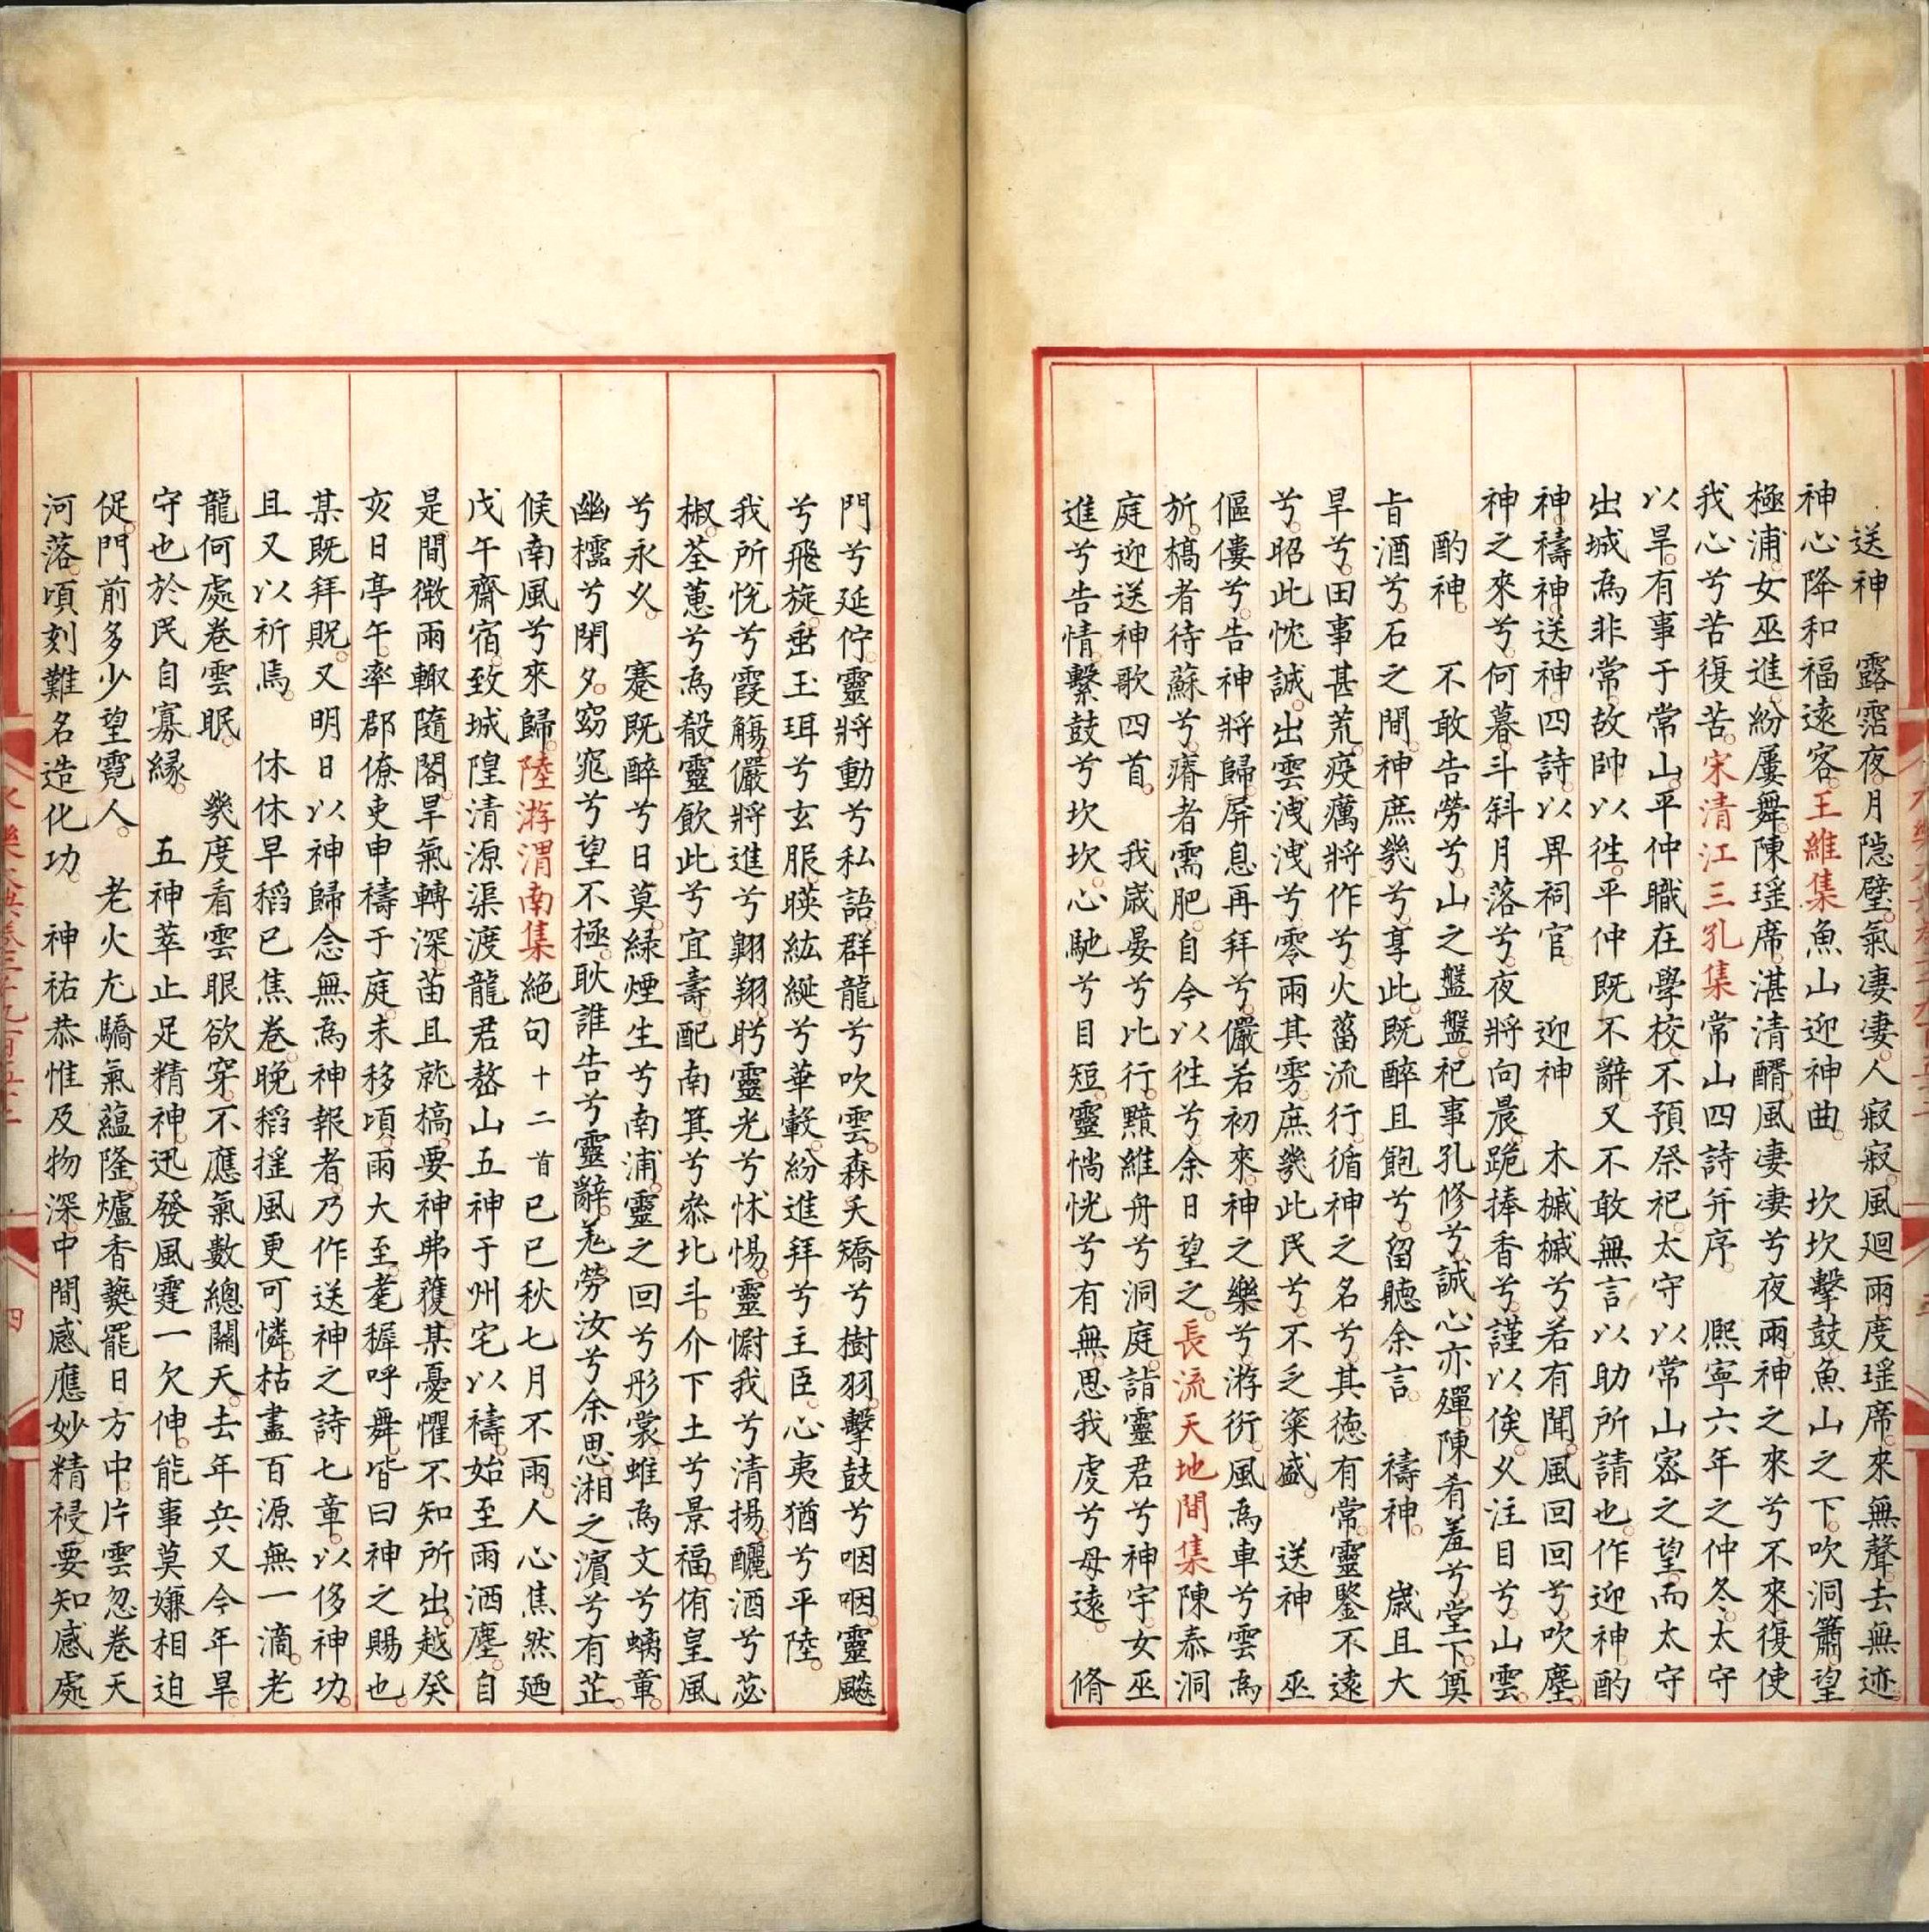 送神　露霑夜月隱壁。氣淒淒。人寂寂。風廻雨。度瑤席。來無聲。去無迹。
神心降和福遠客。王維集魚山迎神曲。　坎坎擊鼓魚山之下。吹洞簫望
極浦。女巫進。紛屢舞。陳瑤席。湛清醑。風淒淒兮夜雨。神之來兮不來。復使
我心兮苦復苦。宋清江三孔集常山四詩并序。　熙寧六年之仲冬。太守
以旱。有事于常山。平仲職在學校。不預祭祀。太守以常山密之望。而太守
出城為非常。故帥以徃。平仲既不辭。又不敢無言以助所請也。作迎神。酌
神。禱神。送神四詩。以畀祠官。　迎神　木槭槭兮。若有聞。風回回兮。吹塵。
神之來兮。何暮。斗斜月落兮。夜將向晨。跪捧香兮。謹以俟。乆注目兮。山雲。
酌神。　不敢告勞兮。山之盤盤。祀事孔修兮。誠心亦殫。陳肴羞兮。堂下。奠
㫖酒兮。石之間。神庶幾兮。享此。既醉且飽兮。留聽余言。　禱神。　歳且大
旱兮。田事甚荒。疫癘將作兮。火菑流行。循神之名兮。其徳有常。靈鑒不遠
兮。昭此忱誠。出雲洩洩兮。零雨其雱。庶幾此民兮。不乏粢盛。　送神　巫
傴僂兮。告神將歸。屏息再拜兮。儼若初來。神之樂兮。游衍。風為車兮。雲為
旂。槁者待蘇兮。瘠者需肥。自今以徃兮。余日望之。長流天地間集陳泰洞
庭迎送神歌四首。　我歳晏兮。比行。黯維舟兮。洞庭。詣靈君兮神宇。女巫
進兮告情。繫鼓兮坎坎。心馳兮目短。靈惝恍兮有無。思我虔兮母遠。　脩
門兮延佇。靈將動兮私語。群龍兮吹雲。森夭矯兮樹羽。擊鼓兮咽咽。靈飈
兮飛旋。埀玉珥兮玄服。暎紘綖兮華轂。紛進拜兮主臣。心夷猶兮平陸。
我所悅兮霞觴。儼將進兮翺翔。盻靈光兮怵惕。靈慰我兮清揚。釃酒兮苾
椒。荃蕙兮為殽。靈飲此兮宜壽。配南箕兮㕘北斗。介下土兮景福。侑皇風
兮永乆。　蹇既醉兮日莫。緑煙生兮南浦。靈之回兮彤裳。蜼為文兮螭章。
幽櫺兮閉夕。窈窕兮望不極。耿誰告兮靈辭。羌勞汝兮余思。湘之濵兮有芷。
候南風兮來歸。陸游渭南集絶句十二首已巳秋七月不雨。人心焦然廼
戊午齋宿。致城隍清源渠渡龍君嶅山五神于州宅以禱。始至雨洒塵。自
是間微雨輒隨閣。旱氣轉深。苗且就槁。要神弗獲。某憂懼不知所出。越癸
亥日亭午。率郡僚吏申禱于庭。未移頃。雨大至。耄穉呼舞。皆曰神之賜也。
某既拜貺。又明日以神歸。念無為神報者。乃作送神之詩七章。以侈神功。
且又以祈焉。　休休早稻已焦卷。晚稻揺風更可憐。枯盡百源無一滴。老
龍何處卷雲眠。　幾度看雲眼欲穿。不應氣數總關天。去年兵又今年旱。
守也於民自寡緣。　五神萃止足精神。迅發風霆一欠伸。能事莫嫌相迫
促。門前多少望霓人。　老火尢驕氣蘊隆。爐香爇罷日方中。片雲忽卷天
河落。頃刻難名造化功。　神祐恭惟及物深。中間感應妙精祲。要知感處